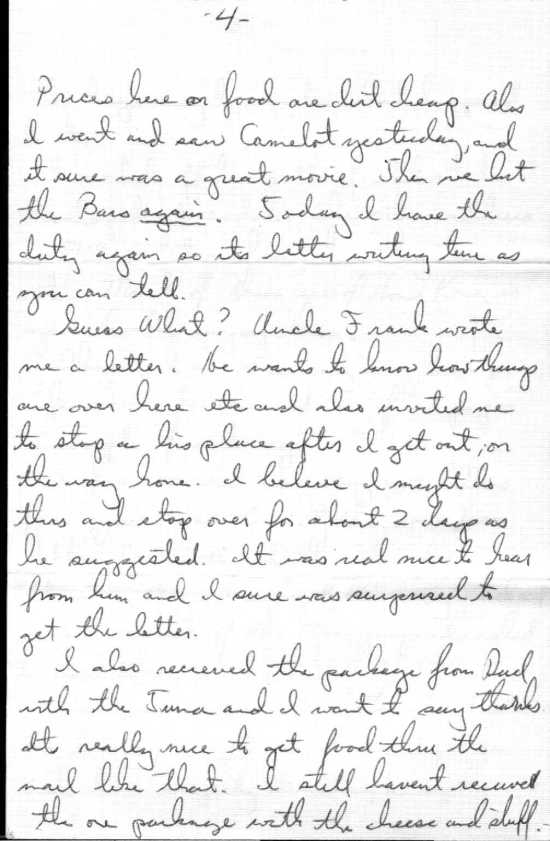 -4-
Prices here on food are dirt cheap. Also
I went and saw Camelot yesterday, and
it sure was a great movie. Then we hit
the Bars again. Today I have the
duty again so its letter writing time as
you can tell.
Guess What? Uncle Frank wrote
me a letter. He wants to know how things
are over here etc and also invited me
to stop a his place after I get out, on
the way home. I believe I might do
this and stop over for about 2 days as
he suggested. It was real nice to hear
from him and I sure was surprised to
get the letter.
I also recieved the package from Dad
with the Tuna and I want to say thanks
Its really nice to get food thru the
mail like that. I still havent recieved
the one package with the cheese and stuff.-